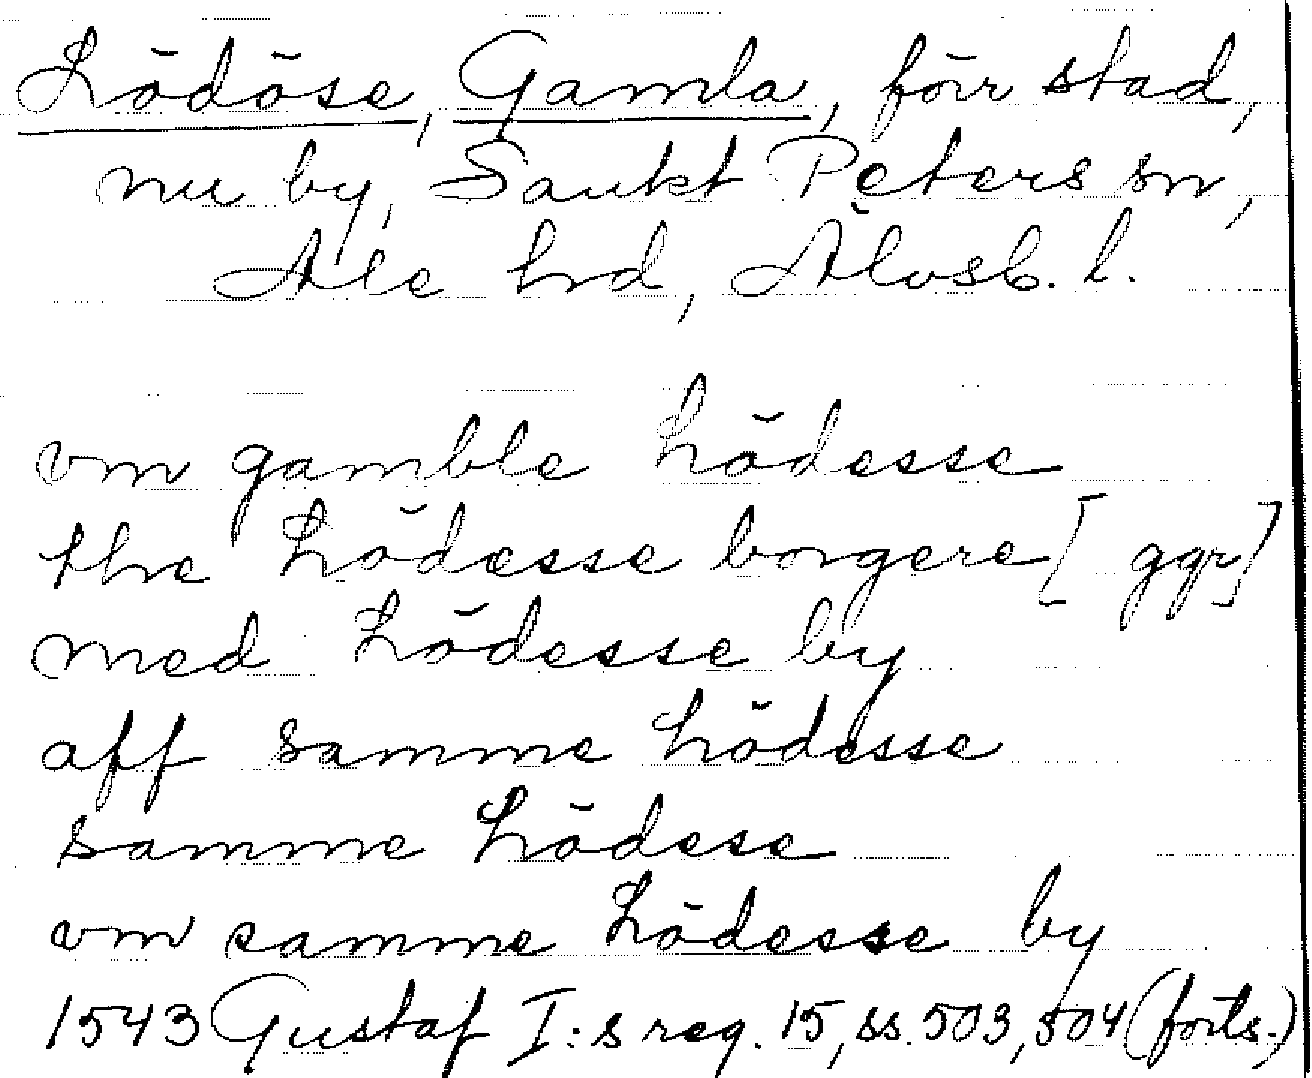 Lödöse, Gamla, förr stad,
nu by, Sankt Peters sn,
Ale hd, Älvsb. l.
vm gamble Lödesse
the Lödesse borgere [ggr]
med Lödesse by
aff samme Lödesse
samme Lödese
vm samme Lödesse by
1543 Gustaf I:s reg. 15, ss. 503, 504 (forts.)